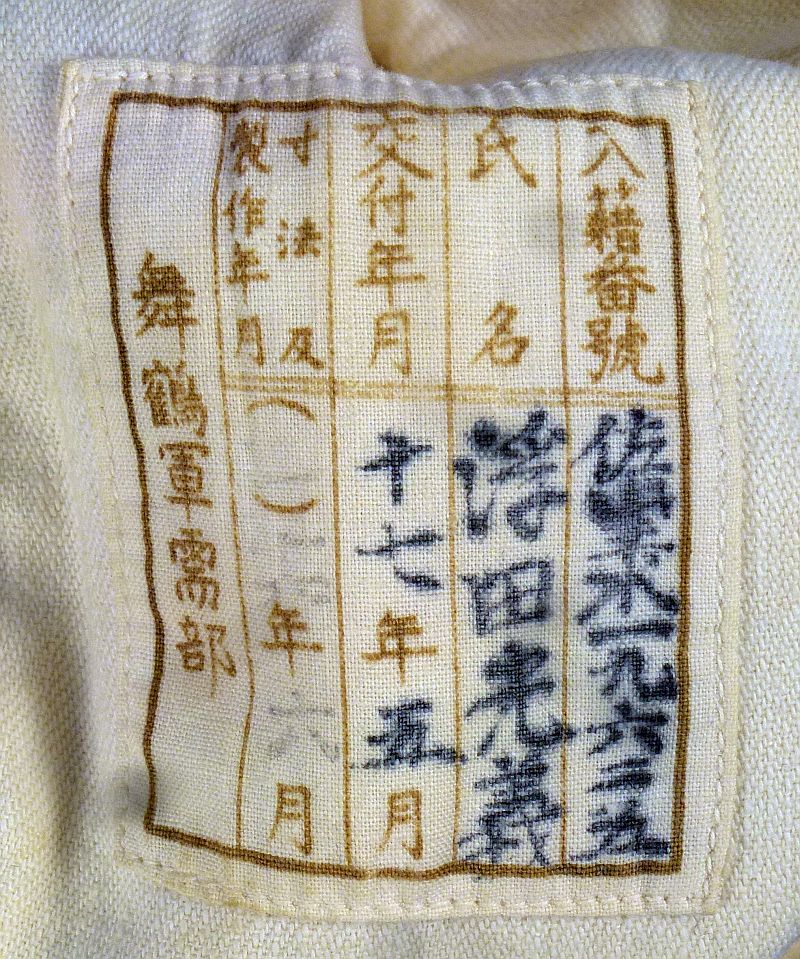 入籍番號 佐志水一九六三五
氏名 浮田光義
交付年月 十七年五月
寸法及
製作年月 ( ) 年六月
舞鶴軍需部